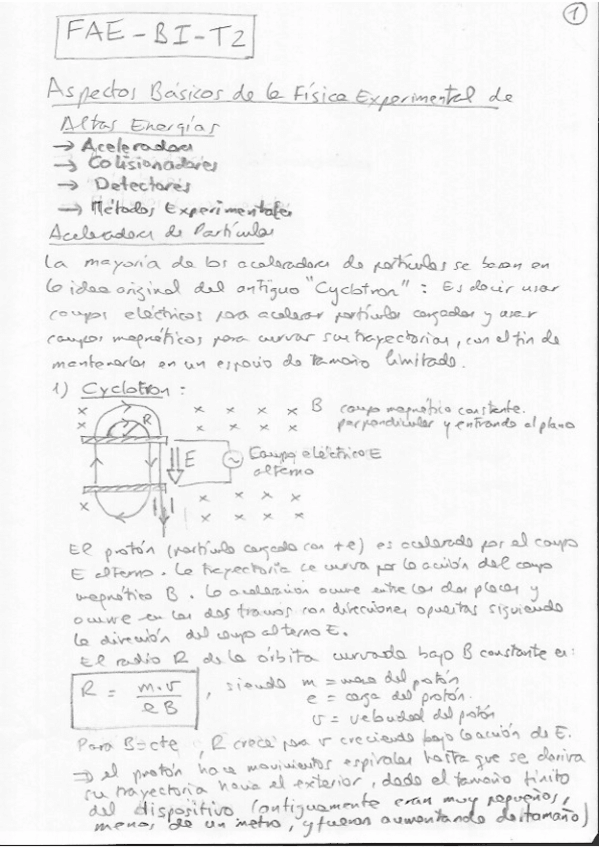 1
FAE-BI-T2
Aspectos Básicos de la Física Experimental de
Altas Energías
→ Aceleradores
→ Colisionadores
→ Detectores
→ Métodos Experimentales
Aceleradores de Partículas
La mayoría de los aceleradores de partículas se basan en
la idea original del antiguo "Cyclotron": Es decir usar
campos eléctricos para acelerar partículas cargadas y usar
campos magnéticos para curvar sus trayectorias, con el fin de
mantenerlas en un espacio de tamaño limitado.
1) Cyclotron:
x x x x x B campo magnético constante.
x R x x x x perpendicular y entrando al plano
E Campo eléctrico E
alterno
x x x x x
x x x x
El protón (partícula cargada con +e) es acelerado por el campo
E alterno. La trayectoria se curva por la acción del campo
magnético B. La aceleración ocurre entre las dos placas y
ocurre en los dos tramos con direcciones opuestas siguiendo
la dirección del campo alterno E.
El radio R de la órbita curvada bajo B constante es:
R = m·v / eB , siendo m = masa del protón
e = carga del protón.
v = velocidad del protón
Para B=cte, R crece para v creciendo bajo la acción de E.
⇒ el protón hace movimientos espirales hasta que se deriva
su trayectoria hacia el exterior, dado el tamaño finito
del dispositivo (antiguamente eran muy pequeños,
menos de un metro, y fueron aumentando de tamaño)